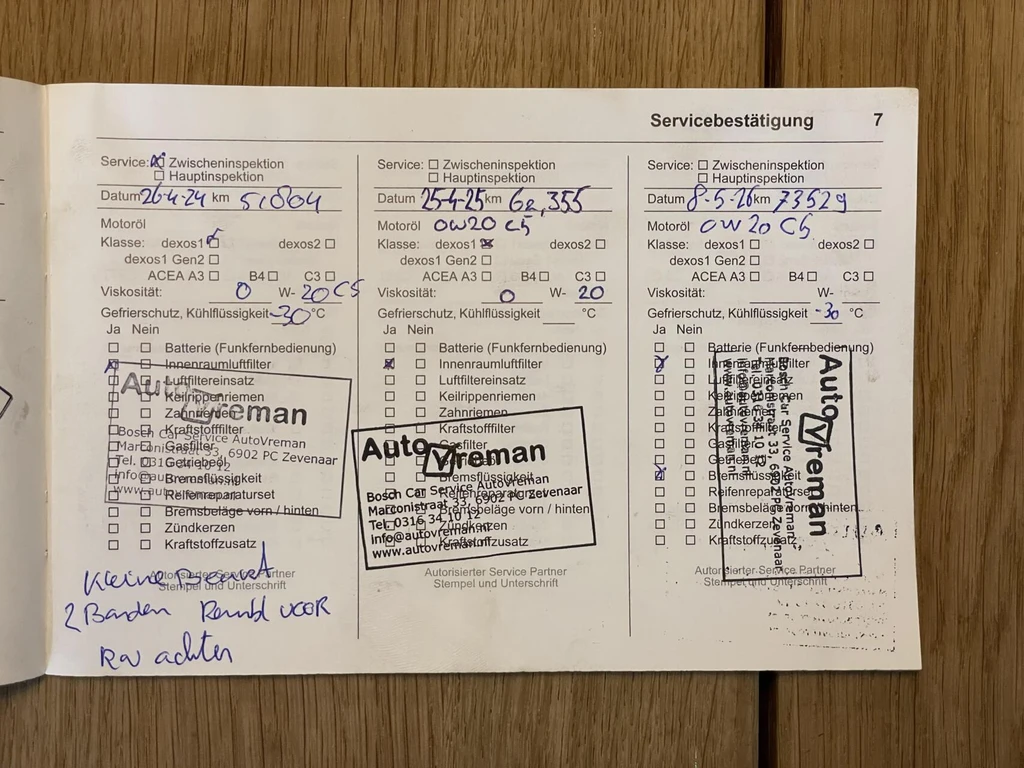 Servicebestätigung 7
Service: Zwischeninspektion
Hauptinspektion
Datum 26-4-24 km 51804
Motoröl
Klasse: dexos1 dexos2
dexos1 Gen2
ACEA A3 B4 C3
Viskosität: 0 W- 20 C5
Gefrierschutz, Kühlflüssigkeit -30 °C
Ja Nein
Batterie (Funkfernbedienung)
Innenraumluftfilter
Luftfiltereinsatz
Keilrippenriemen
Zahnriemen
Kraftstofffilter
Gasfilter
Getriebeöl
Bremsflüssigkeit
Reifenreparaturset
Bremsbeläge vorn / hinten
Zündkerzen
Kraftstoffzusatz
Auto Vreman
Bosch Car Service AutoVreman
Marconistraat 33, 6902 PC Zevenaar
Tel. 0316 34 10 12
info@autovreman.nl
www.autovreman.nl
Autorisierter Service Partner
Stempel und Unterschrift
Kleine Beurt
2 Banden Rembl voor
Rw achter
Service: Zwischeninspektion
Hauptinspektion
Datum 25-4-25 km 62,355
Motoröl 0W20 C5
Klasse: dexos1 dexos2
dexos1 Gen2
ACEA A3 B4 C3
Viskosität: 0 W- 20
Gefrierschutz, Kühlflüssigkeit °C
Ja Nein
Batterie (Funkfernbedienung)
Innenraumluftfilter
Luftfiltereinsatz
Keilrippenriemen
Zahnriemen
Kraftstofffilter
Gasfilter
Getriebeöl
Bremsflüssigkeit
Reifenreparaturset
Bremsbeläge vorn / hinten
Zündkerzen
Kraftstoffzusatz
Auto Vreman
Bosch Car Service AutoVreman
Marconistraat 33, 6902 PC Zevenaar
Tel. 0316 34 10 12
info@autovreman.nl
www.autovreman.nl
Autorisierter Service Partner
Stempel und Unterschrift
Service: Zwischeninspektion
Hauptinspektion
Datum 8-5-26 km 73529
Motoröl 0W20 C5
Klasse: dexos1 dexos2
dexos1 Gen2
ACEA A3 B4 C3
Viskosität: W-
Gefrierschutz, Kühlflüssigkeit -30 °C
Ja Nein
Batterie (Funkfernbedienung)
Innenraumluftfilter
Luftfiltereinsatz
Keilrippenriemen
Zahnriemen
Kraftstofffilter
Gasfilter
Getriebeöl
Bremsflüssigkeit
Reifenreparaturset
Bremsbeläge vorn / hinten
Zündkerzen
Kraftstoffzusatz
Auto Vreman
Bosch Car Service AutoVreman
Marconistraat 33, 6902 PC Zevenaar
Tel. 0316 34 10 12
info@autovreman.nl
www.autovreman.nl
Autorisierter Service Partner
Stempel und Unterschrift